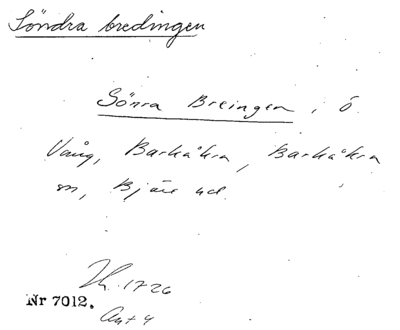 Söndra bredingen
Sönra Breingen, Ö.
Vång, Barkåkra, Barkåkra
sn, Bjäre hd.
Lk. 1726
Nr 7012.
Akt 4